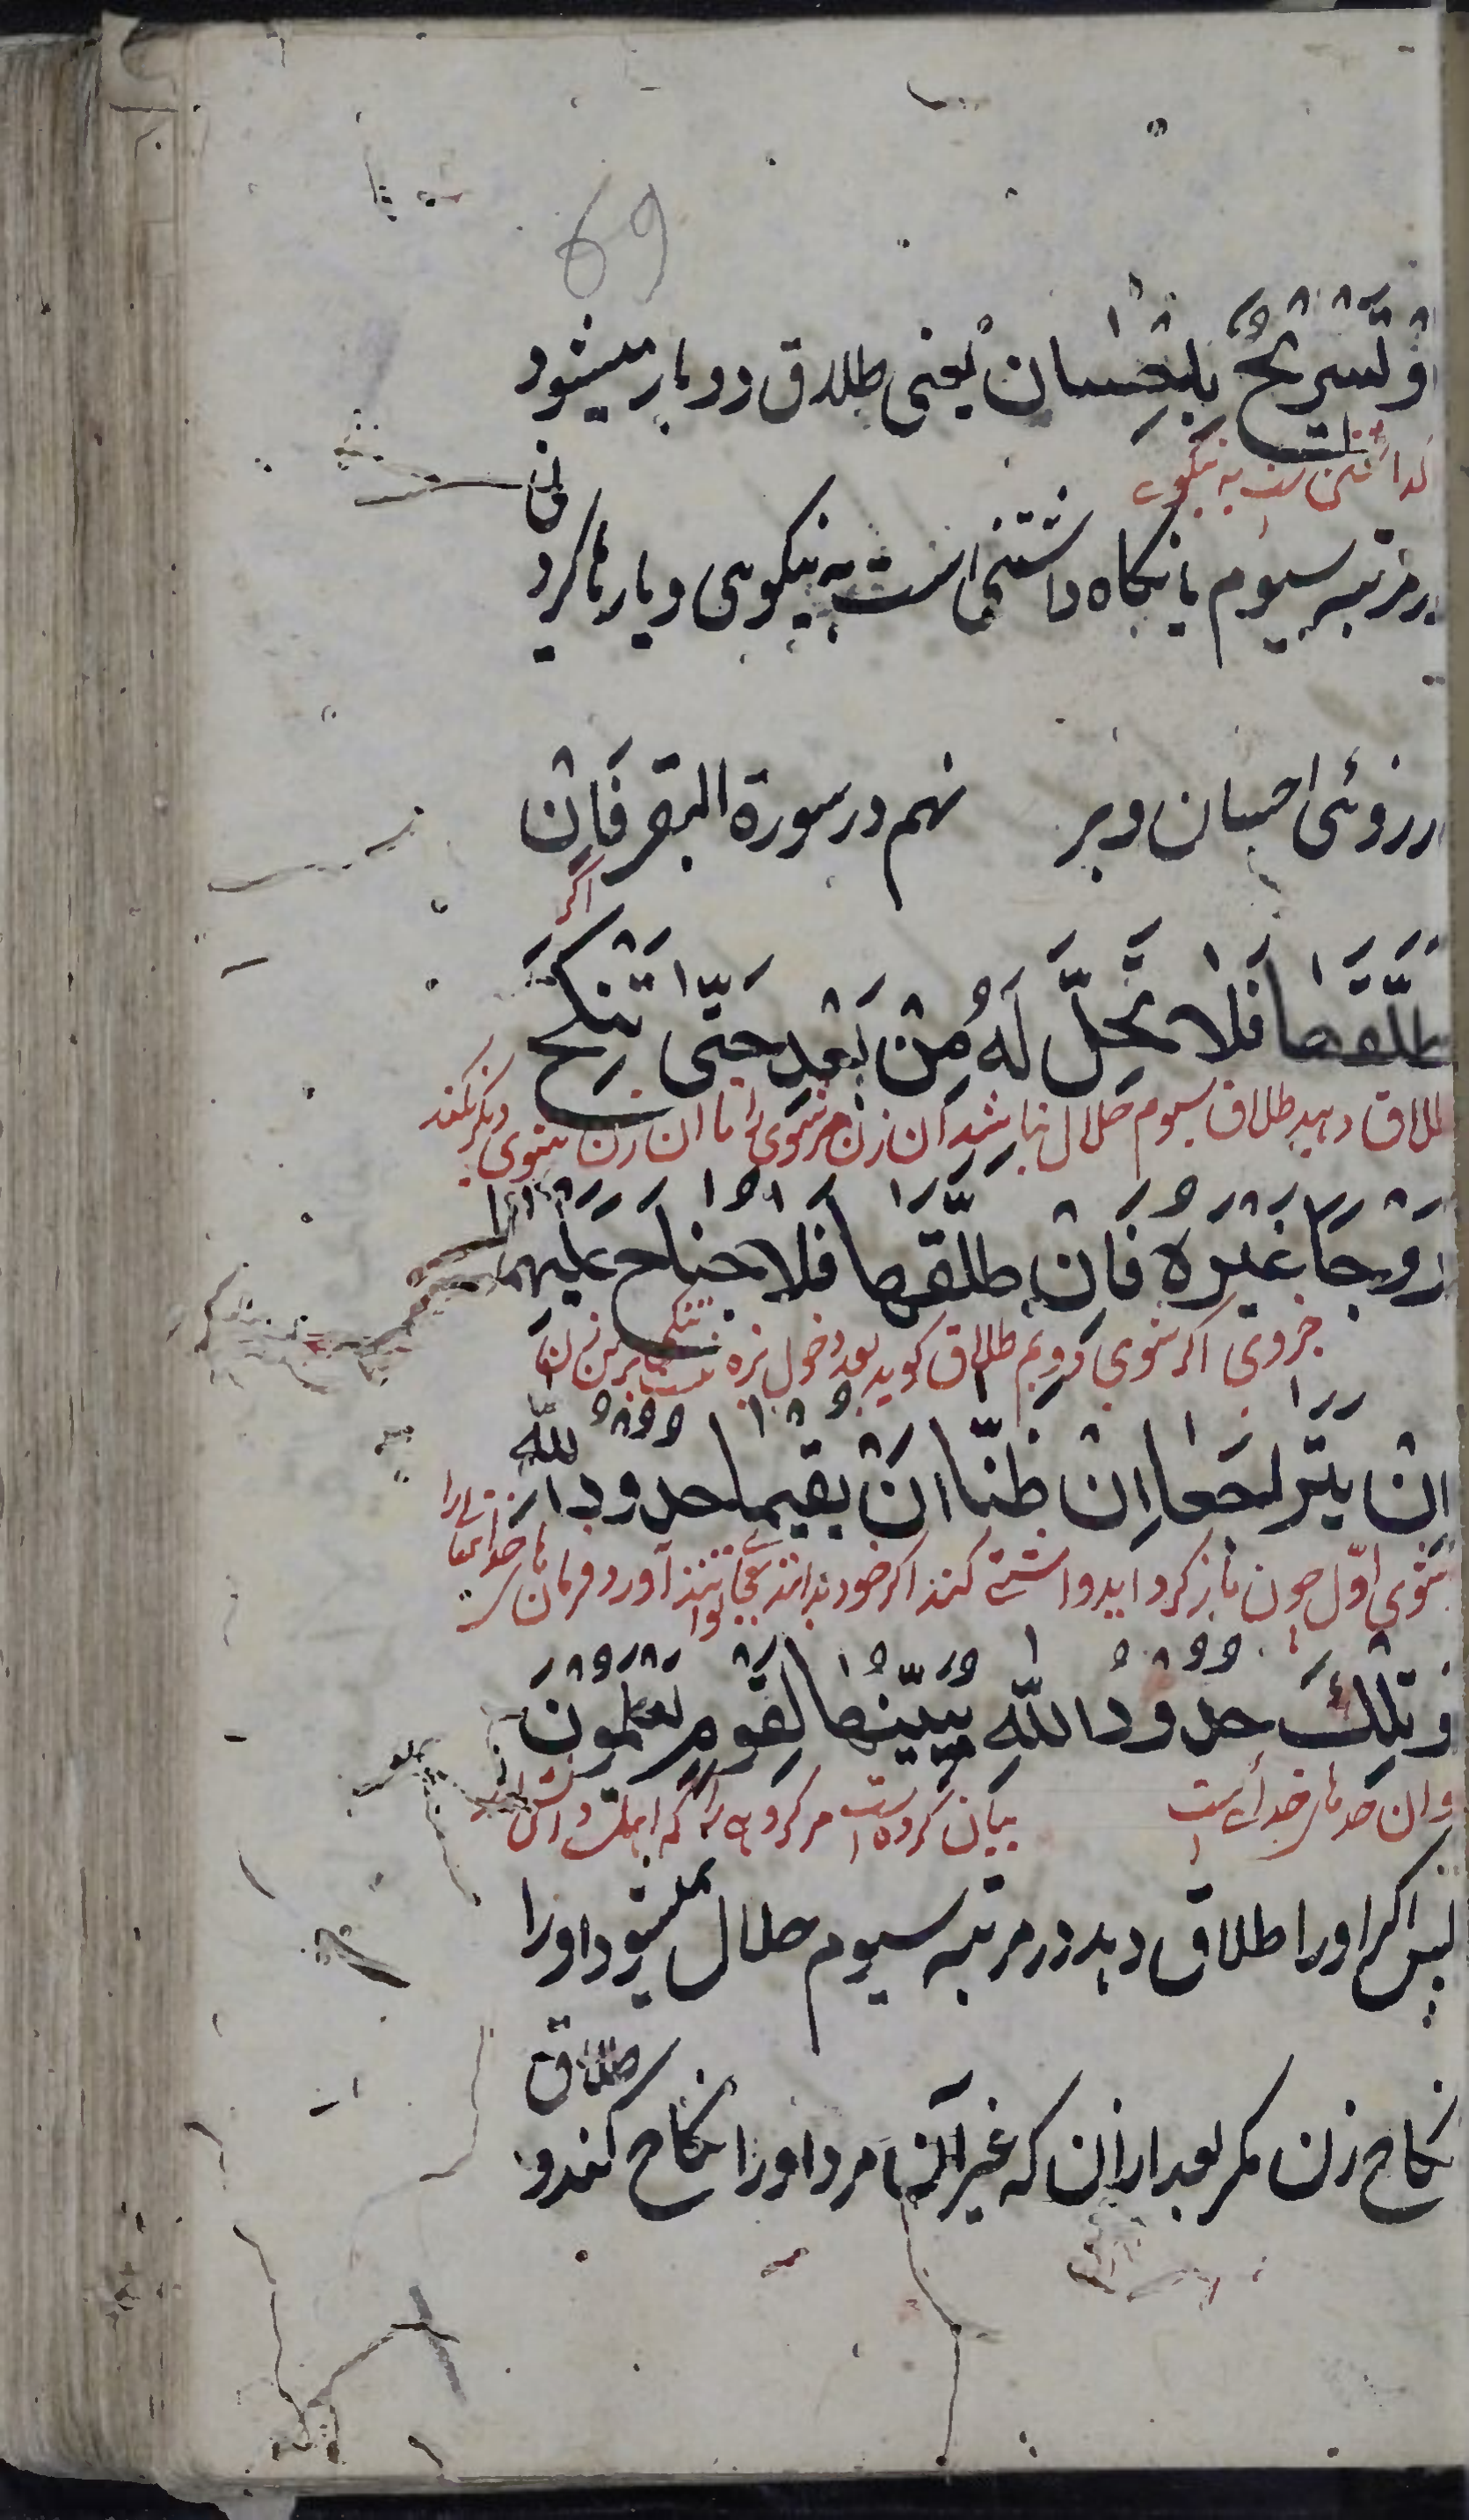 69
اَوْ تَسْرِیْحٌ بِاِحْسَان یَعنی طلاق دو بار میشود
است به نیکوی
در مرتبه سیوم یا نگاه داشتنی است به نیکویی و یا رها کرد
نی
از روئی احسان و بر نهم در سورة البقر فَاِنْ
اگر
طَلَّقَهَا فَلَا تَحِلُّ لَهُ مِنْ بَعْدِ حَتّٰی تَنْکِحَ
طلاق دهید طلاق سیوم حلال نباشد آن زن مر شوی را تا آن زن بشوی دیگر نکند
زَوْجًا غَیْرَهُ فَاِنْ طَلَّقَهَا فَلَا جُنَاحَ عَلَیْهِمَا
جز وی اگر شوی دویم طلاق کوید بعد دخول بزه نیست
اَنْ یَتَرَاجَعَا اِنْ ظَنَّا اَنْ یُقِیْمَا حُدُوْدَ اللّٰهِ
بشوی اوّل چون باز کرد کنند اگر خود بدانند آورد فرمان خدای
وَ تِلْكَ حُدُوْدُ اللّٰهِ یُبَیِّنُهَا لِقَوْمٍ یَعْلَمُوْنَ
و ان حدهای خدای است بیان کرده است مر کروهی را که اهل دانش
پس اگر او را طلاق دهد در مرتبه سیوم حلال نمیشود او را
نکاح زن مگر بعد از ان که غیر آن مرد او را نکاح کند و
طلاق